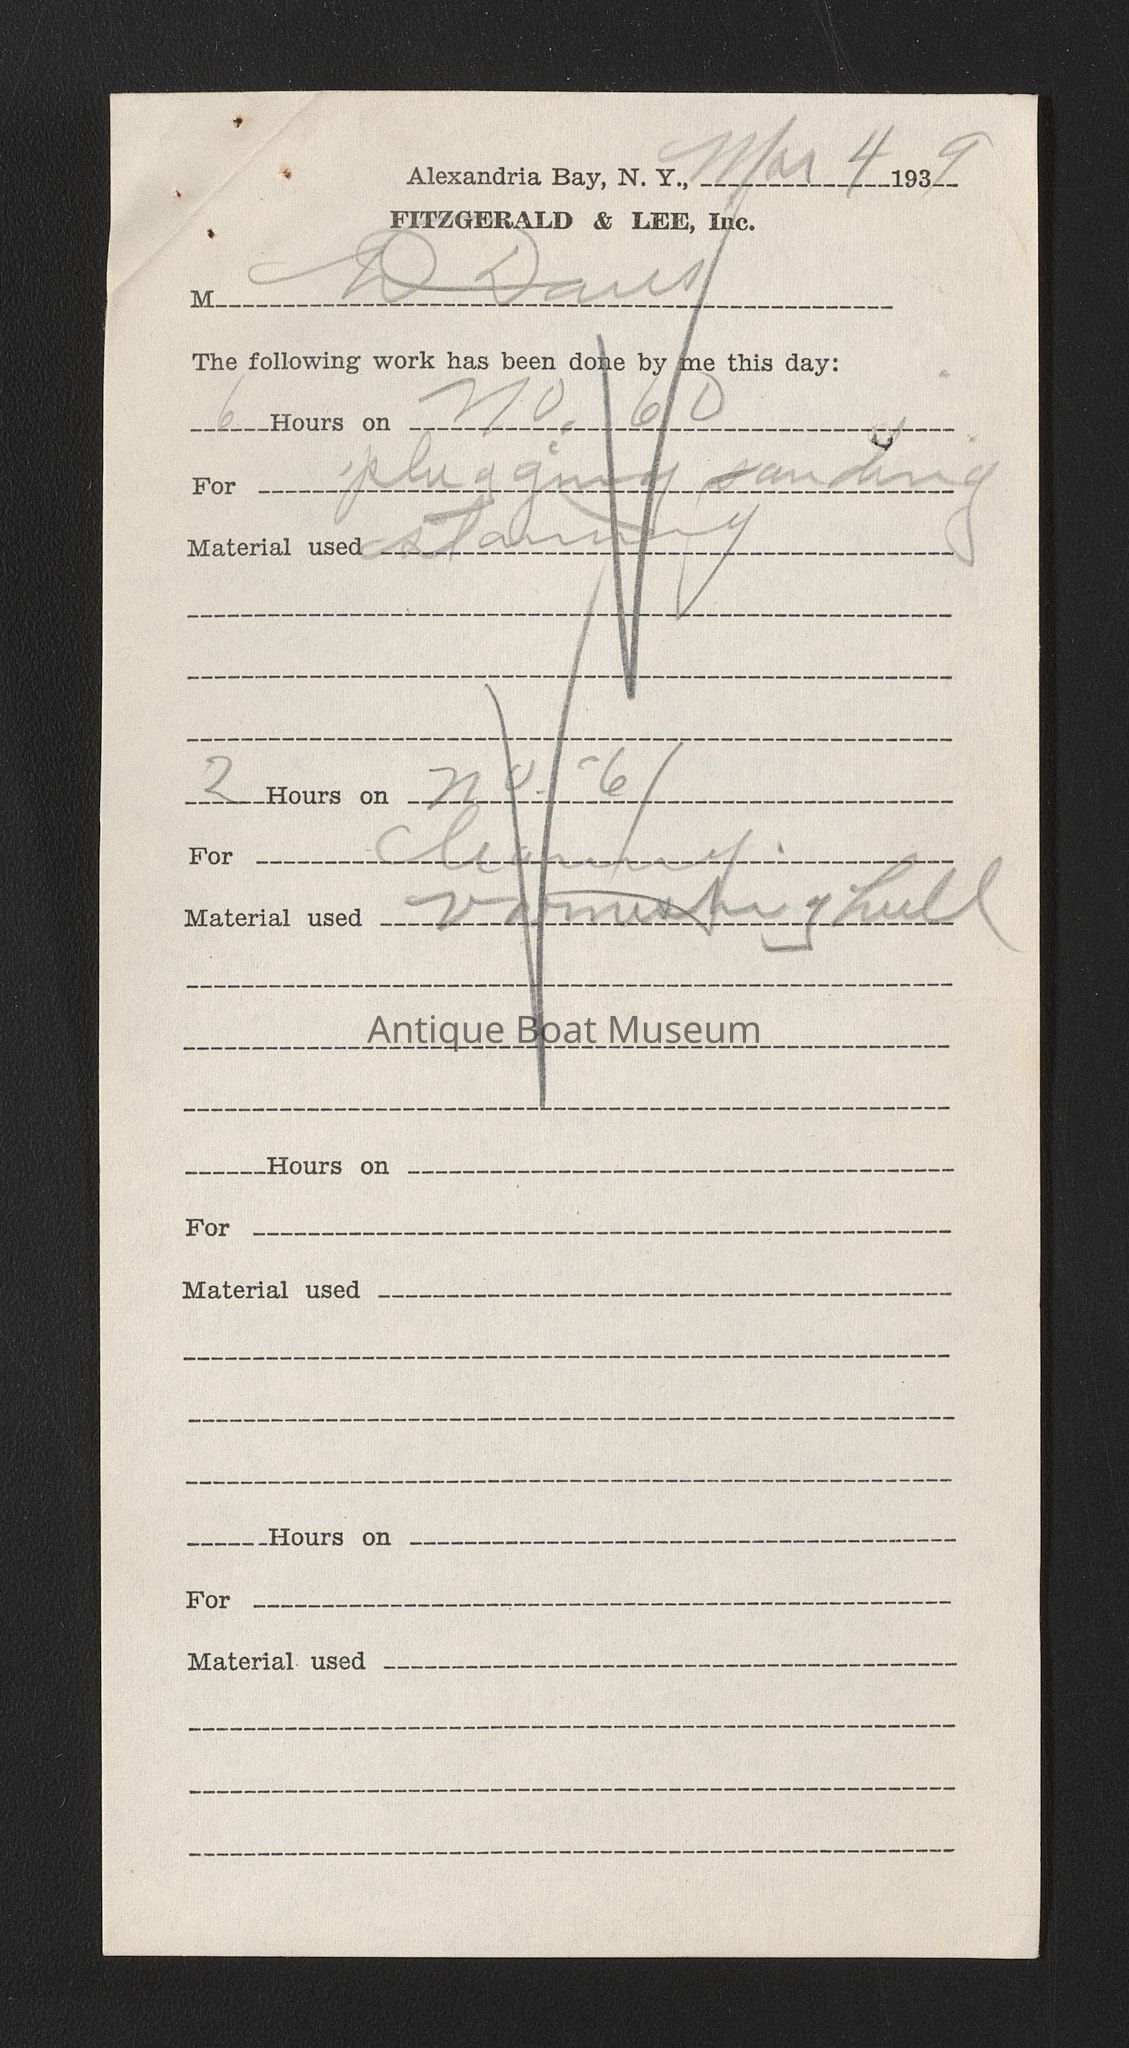 Alexandria Bay, N. Y., Mar 4 1939
FITZGERALD & LEE, Inc.
M D Davis
The following work has been done by me this day:
6 Hours on No. 60
For plugging sanding
Material used staining
2 Hours on No. 61
For Cleaning
Material used varnishing hull
Antique Boat Museum
Hours on
For
Material used
Hours on
For
Material used